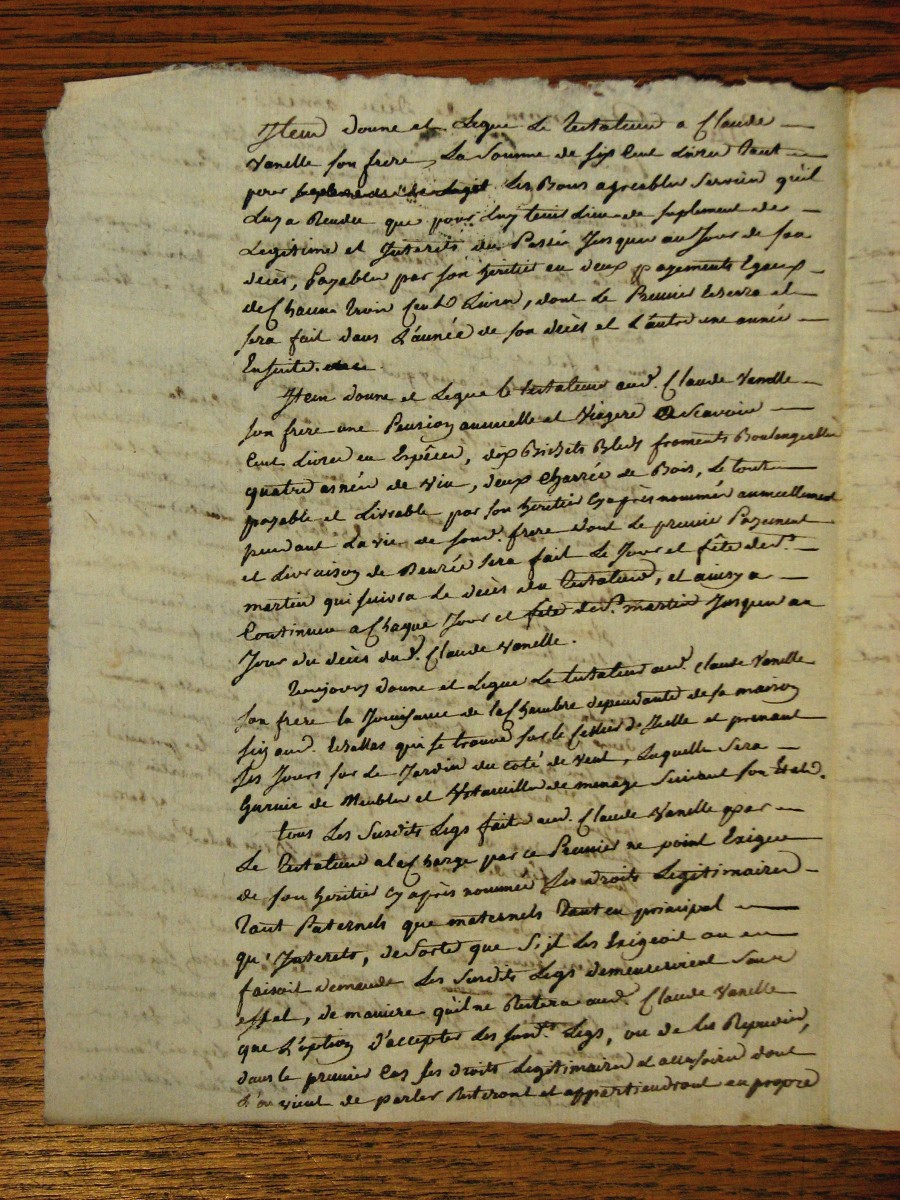 Item donne et Legue Le testateur a Claude
Vanelle son frere, La Somme de six Cent Livres tant
pour Les Bons agreables Services qu'il
Luy a Rendu que pour Luy tenir Lieu de suplement de
Legitime et Interets du Passé Jusques au Jour de son
deces, Payables par son heritier en deux payements Egaux
de Chacun trois Cents Livres, dont Le Premier Echerra et
sera fait dans L'année de son décès et L'autre une année
Ensuite.
Item donne et Legue le testateur aud.t Claude Vanelle
son frere une Pension annuelle et Viagere Scavoir
Cent Livres en Espéces, dix Bichets Bleds froments Boulangeables
quatre asnées de vin, deux Charrée de Bois, Le tout
payable et Livrable par son heritier Cy après nommé annuellement
pendant La vie de sond.t frere dont Le premier Payement
et Livraison de Denrée sera fait Le Jour et fête de S.t
martin qui suivra Le décès du testateur, et ainsy a
Continuer a Chaque Jour et fête de S.t martin Jusques au
Jour du décès dud.t Claude Vanelle.
Toujours donne et Legue Le testateur aud.t Claude Vanelle
son frere la Jouissance de la Chambre dependante de sa maison
size aud. qui se trouve sur le Cellier d'Icelle et prenant
ses Jours sur Le Jardin du coté de vent, Laquelle sera
Garnie de Meubles et Ustancilles de menage Suivant son Etat.
tous Les Susdits Legs faits aud.t Claude Vanelle par
Le testateur a la Charge par ce Premier ne point Exiger
de son heritier Cy après nommé Ses droits Legitimaires
tant Paternels que maternels tant en principal
qu'Interets, de sorte que S'il Les Exigeoit ou en
faisoit demande Les Susdits Legs demeureroient Sans
effet, de maniere qu'il ne Restera aud.t Claude Vanelle
que L'option d'accepter Les susd.ts Legs, ou de Les Repudier,
dans le premier Cas ses droits Legitimaires et accessoires dont
L'on vient de parler Resteront et appartiendront en propre